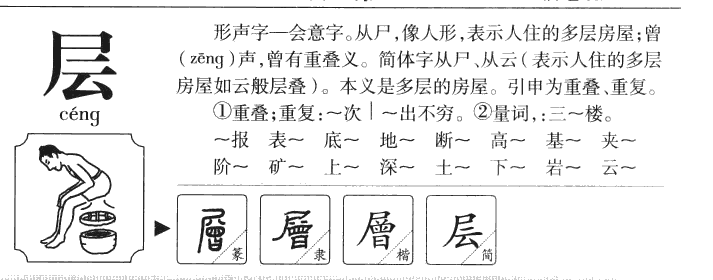 层
céng
形声字—会意字。从尸,像人形,表示人住的多层房屋;曾
(zēng)声,曾有重叠义。简体字从尸、从云(表示人住的多层
房屋如云般层叠)。本义是多层的房屋。引申为重叠、重复。
①重叠;重复:～次｜～出不穷。②量词,:三～楼。
～报 表～ 底～ 地～ 断～ 高～ 基～ 夹～
阶～ 矿～ 上～ 深～ 土～ 下～ 岩～ 云～
層 篆 層 隶 層 楷 层 简